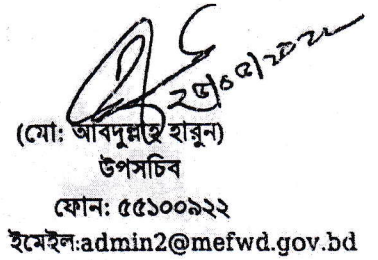 (মো: আবদুল্লাহ হারুন)
উপসচিব
ফোন: ৫৫১০০৯২২
ইমেইল:admin2@mefwd.gov.bd